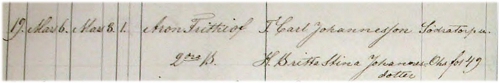 19. Mar 6. Mar 8. 1. Aron Frithiof F. Carl Johannesson Södratorp u.
H. Britta Stina Johannes 49
dotter